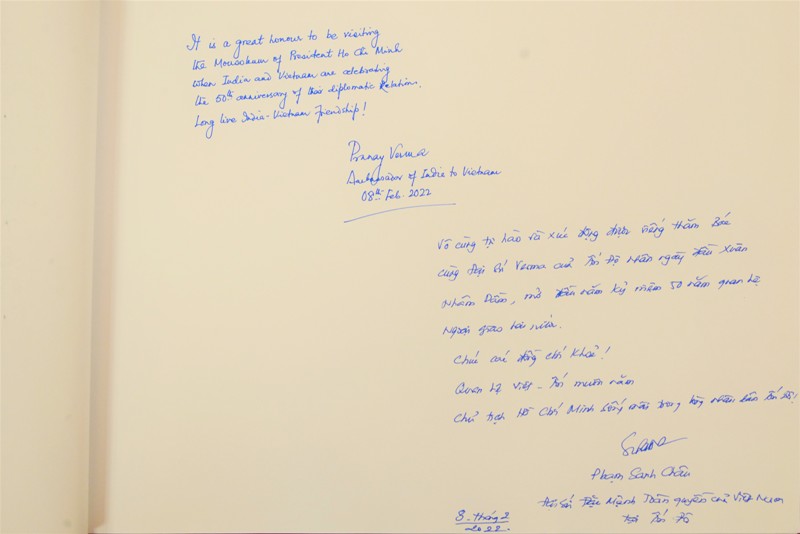 It is a great honour to be visiting
the Mousoleum of President Ho Chi Minh
when India and Vietnam are celebrating
the 50th anniversary of their diplomatic Relations.
Long live India-Vietnam Friendship!
Pranay Verma
Ambassador of India to Vietnam
08th Feb. 2022
Vô cùng tự hào và xúc động được viếng thăm Bác
cùng Đại sứ Verma của Ấn Độ nhân ngày đầu xuân
Nhâm Dần, mở đầu năm kỷ niệm 50 năm quan hệ
Ngoại giao hai nước.
Chúc các đồng chí khoẻ!
Quan hệ Việt - Ấn muôn năm
Chủ tịch Hồ Chí Minh sống mãi trong lòng nhân dân Ấn Độ!
Phạm Sanh Châu
Đại sứ Đặc Mệnh Toàn quyền của Việt Nam
tại Ấn Độ
8-tháng 2
2022.